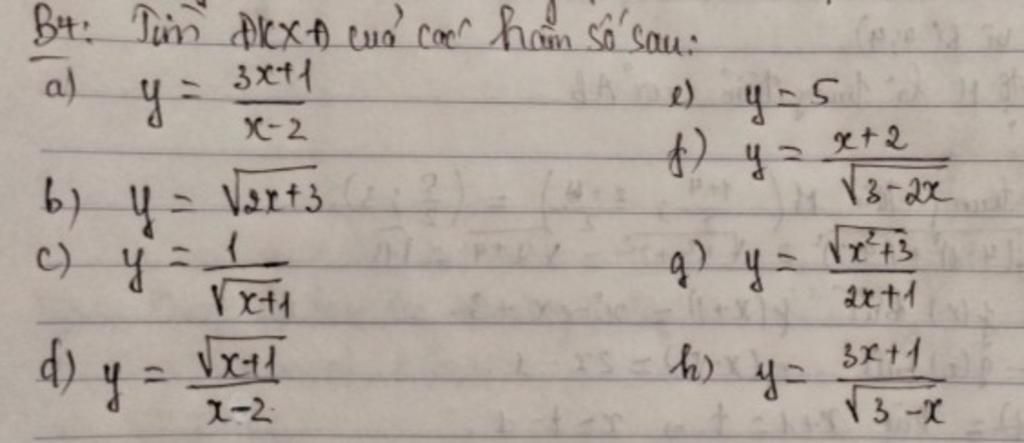 B4: Tìm ĐKXĐ của các hàm số sau:
a) y = \frac{3x+1}{x-2}
b) y = \sqrt{2x+3}
c) y = \frac{1}{\sqrt{x+1}}
d) y = \frac{\sqrt{x+1}}{x-2}
e) y = 5
f) y = \frac{x+2}{\sqrt{3-2x}}
g) y = \frac{\sqrt{x^2+3}}{2x+1}
h) y = \frac{3x+1}{\sqrt{3-x}}